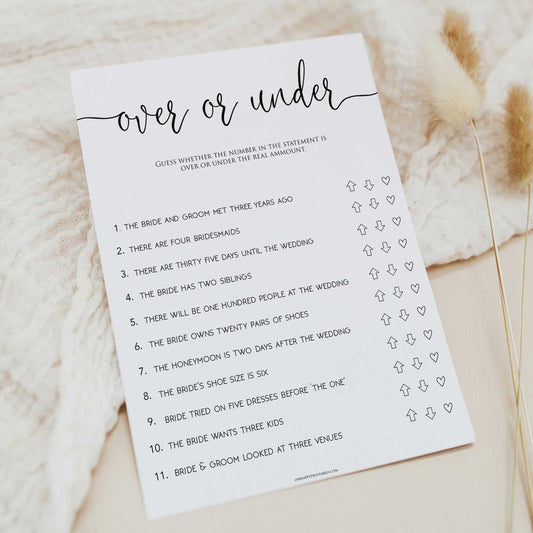 over or under
GUESS WHETHER THE NUMBER IN THE STATEMENT IS
OVER OR UNDER THE REAL AMMOUNT.
1. THE BRIDE AND GROOM MET THREE YEARS AGO
2. THERE ARE FOUR BRIDESMAIDS
3. THERE ARE THIRTY FIVE DAYS UNTIL THE WEDDING
4. THE BRIDE HAS TWO SIBLINGS
5. THERE WILL BE ONE HUNDRED PEOPLE AT THE WEDDING
6. THE BRIDE OWNS TWENTY PAIRS OF SHOES
7. THE HONEYMOON IS TWO DAYS AFTER THE WEDDING
8. THE BRIDE'S SHOE SIZE IS SIX
9. BRIDE TRIED ON FIVE DRESSES BEFORE 'THE ONE'
10. THE BRIDE WANTS THREE KIDS
11. BRIDE & GROOM LOOKED AT THREE VENUES